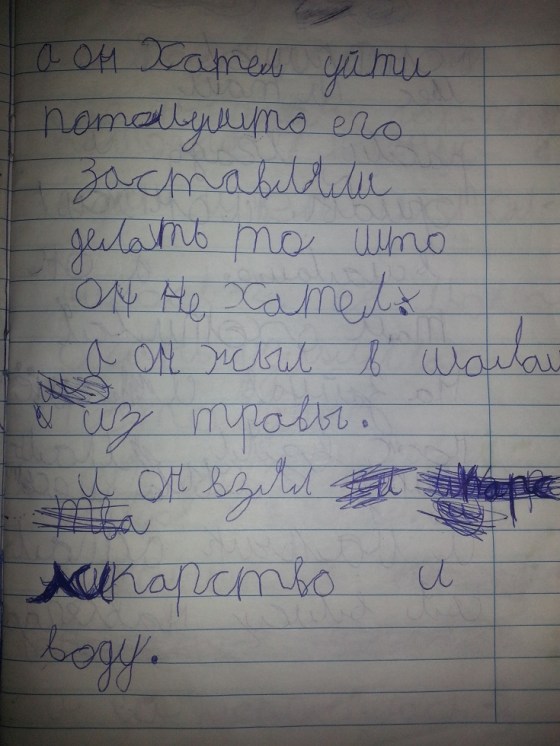 а он хател уйти
потомушто его
заставляли
делать то што
он не хател.
а он жыл в шалаш
из травы.
и он взял
ликарство и
воду.